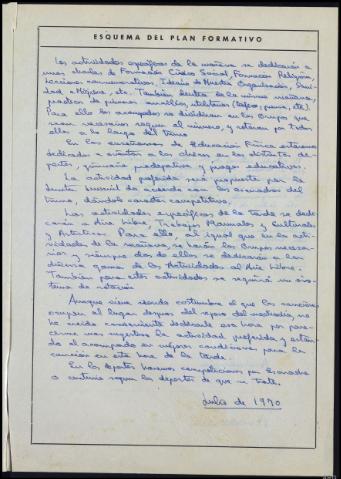 ESQUEMA DEL PLAN FORMATIVO
Las actividades específicas de la mañana se dedicarán a
unas charlas de Formación Cívico Social, Formación Religiosa,
Lecciones conmemorativas, Ideario de Organización, Sani-
dad e Higiene, etc. También dentro de la misma mañana,
practicas de primeros auxilios, utilitarias
Para ello los acampados se dividirán en los Grupos que
sean necesarios según el número, y rotarán por todos
ellos a lo largo del turno
En las enseñanzas de Educación Física estarán
dedicadas a en las distintas de-
portes, gimnasia predeportiva y juegos educativos.
La actividad preferida será propuesta por la
Junta de acuerdo con los acampados del
turno, dándole carácter competitivo.
Las actividades específicas de la tarde se dedi-
carán a Aire Libre, Trabajos Manuales y Culturales
y Artísticos. Para ello, al igual que en las acti-
vidades de la mañana, se harán los Grupos necesa-
rios y siempre dos de ellos se dedicarán a las
diversa gama de las Actividades al Aire Libre.
También para estas actividades se seguirá un sis-
tema de rotación
Aunque sigue siendo costumbre el que las canciones
ocupen el lugar después del reposo del mediodía, no
he creído conveniente dedicarle esa hora por pare-
cerme mas sugestiva la actividad preferida y estan-
do el acampado en mejores condiciones para la
canción en esta hora de la tarde
En los deportes haremos competiciones por Escuadra
o centuria según los deportes de que se trate.
Julio de 1970